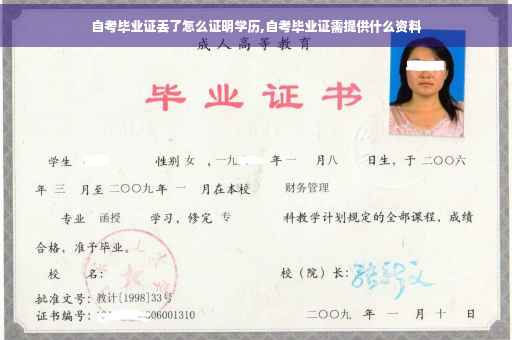 自考毕业证丢了怎么证明学历,自考毕业证需提供什么资料
成人高等教育
毕业证书
学生 性别 女 ,一九 年 一 月八 日生，于 二〇〇六
年 三 月至 二〇〇九 年 一 月在本校 财务管理
专业 函授 学习，修完 专 科教学计划规定的全部课程，成绩
合格，准予毕业。
校 名： 校（院）长：
批准文号：教计[1998]33号
证书编号： 06001310 二〇〇九 年 一 月 十 日